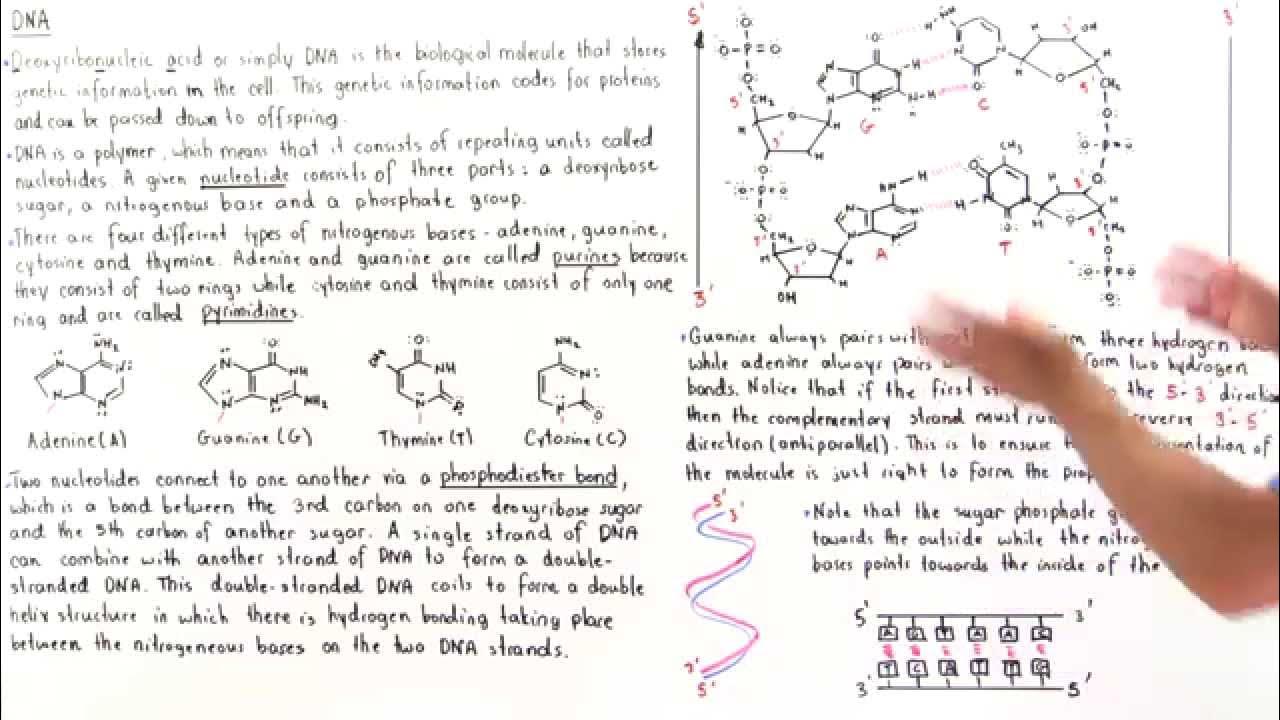 DNA
Deoxyribonucleic acid or simply DNA is the biological molecule that stores
genetic information in the cell. This genetic information codes for proteins
and can be passed down to offspring.
DNA is a polymer, which means that it consists of repeating units called
nucleotides. A given nucleotide consists of three parts: a deoxyribose
sugar, a nitrogenous base and a phosphate group.
There are four different types of nitrogenous bases - adenine, guanine,
cytosine and thymine. Adenine and guanine are called purines because
they consist of two rings while cytosine and thymine consist of only one
ring and are called pyrimidines.
Adenine (A) Guanine (G) Thymine (T) Cytosine (C)
Two nucleotides connect to one another via a phosphodiester bond,
which is a bond between the 3rd carbon on one deoxyribose sugar
and the 5th carbon of another sugar. A single strand of DNA
can combine with another strand of DNA to form a double-
stranded DNA. This double-stranded DNA coils to form a double
helix structure in which there is hydrogen bonding taking place
between the nitrogeneous bases on the two DNA strands.
5' 3'
G C
A T
3'
OH
Guanine always pairs with three hydrogen
while adenine always pairs form two hydrogen
bonds. Notice that if the first the 5'-3'
then the complementary strand must reverse 3'-5'
direction (antiparallel). This is to ensure of
the molecule is just right to form the
5'
3'
Note that the sugar phosphate
towards the outside while the
bases points towards the inside of the
3'
5'
5' 3'
A G T A A C
T C A T T G
3' 5'